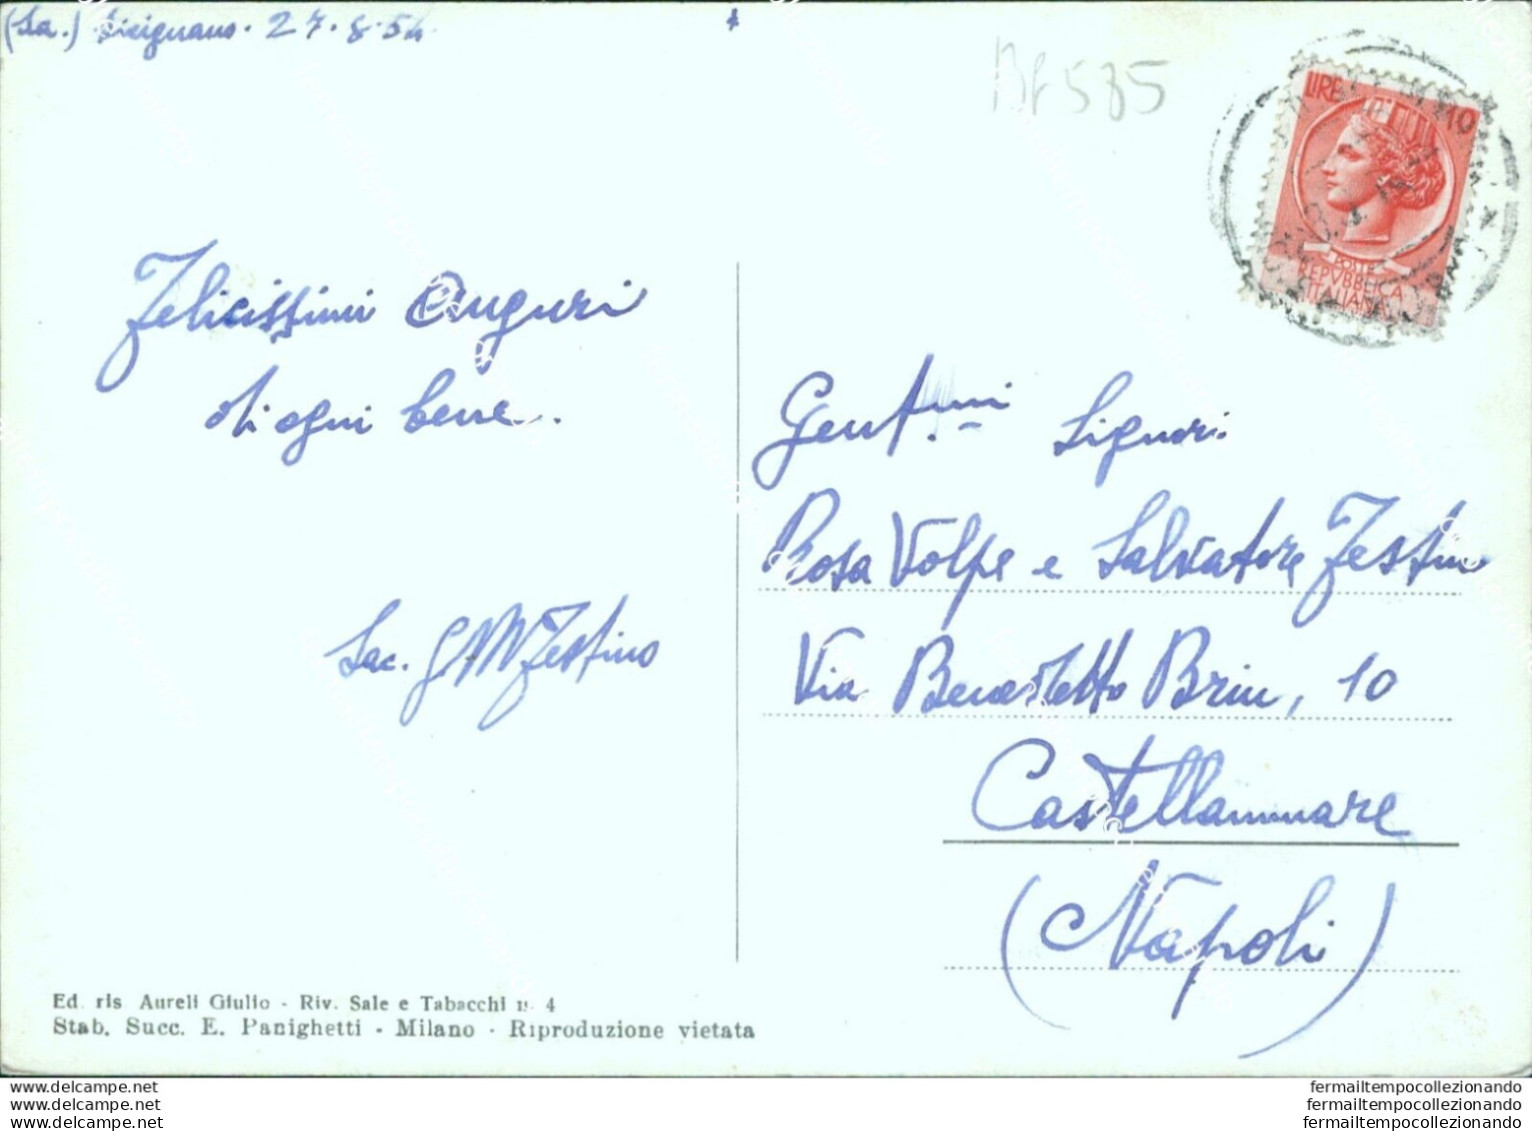 (Sa.) Sicignano. 27.8.54
Bf585
LIRE 10
POSTE
REPVBBLICA
ITALIANA
Felicissimi Auguri
di ogni bene.
Sac. G M Festino
Gent.mi Signori
Rosa Volpe e Salvatore Festino
Via Benedetto Brin, 10
Castellammare
(Napoli)
Ed. ris Aureli Giulio - Riv. Sale e Tabacchi n. 4
Stab. Succ. E. Panighetti - Milano - Riproduzione vietata
www.delcampe.net
www.delcampe.net
www.delcampe.net
fermailtempocollezionando
fermailtempocollezionando
fermailtempocollezionando